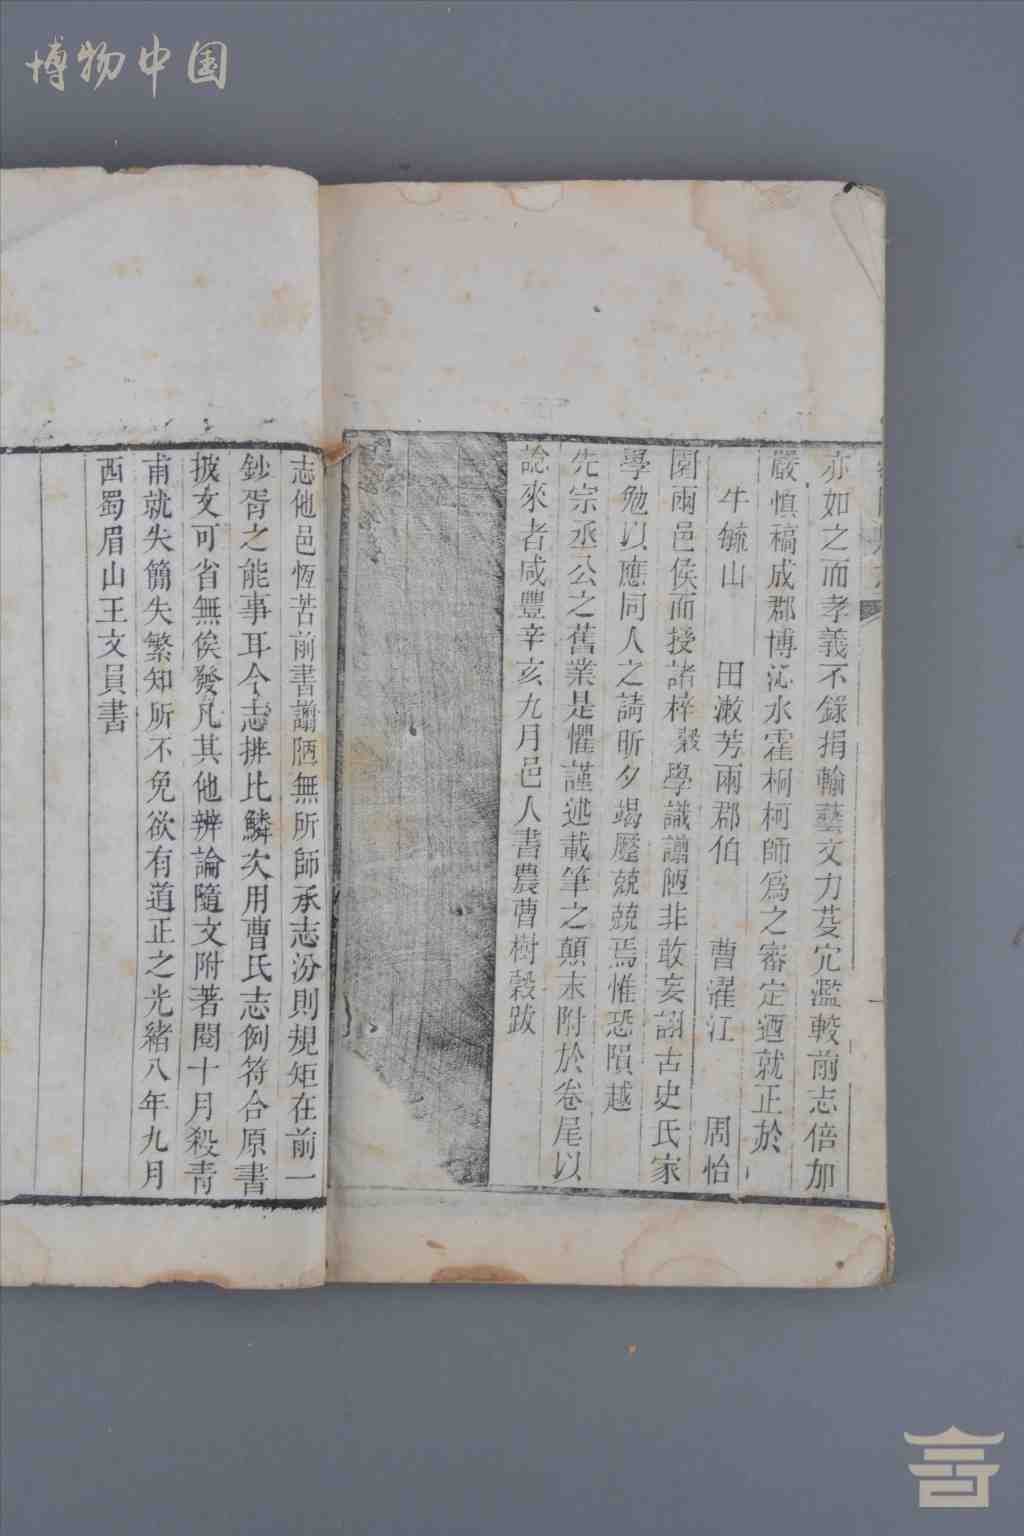 博物中国
亦如之而孝義不錄捐輸藝文力芟宂濫較前志倍加
嚴慎稿成郡博沁水霍桐柯師爲之審定迺就正於
牛毓山 田漱芳兩郡伯 曹濯江 周怡
園兩邑侯而授諸梓穀學識譾陋非敢妄詡古史氏家
學勉以應同人之請昕夕竭蹙兢兢焉惟恐隕越
先宗丞公之舊業是懼謹述載筆之顛末附於卷尾以
諗來者咸豐辛亥九月邑人書農曹樹穀跋
志他邑恆苦前書譾陋無所師承志汾則規矩在前一
鈔胥之能事耳今志排比鱗次用曹氏志例符合原書
披文可省無俟發凡其他辨論隨文附著閱十月殺青
甫就失簡失繁知所不免欲有道正之光緒八年九月
西蜀眉山王文員書